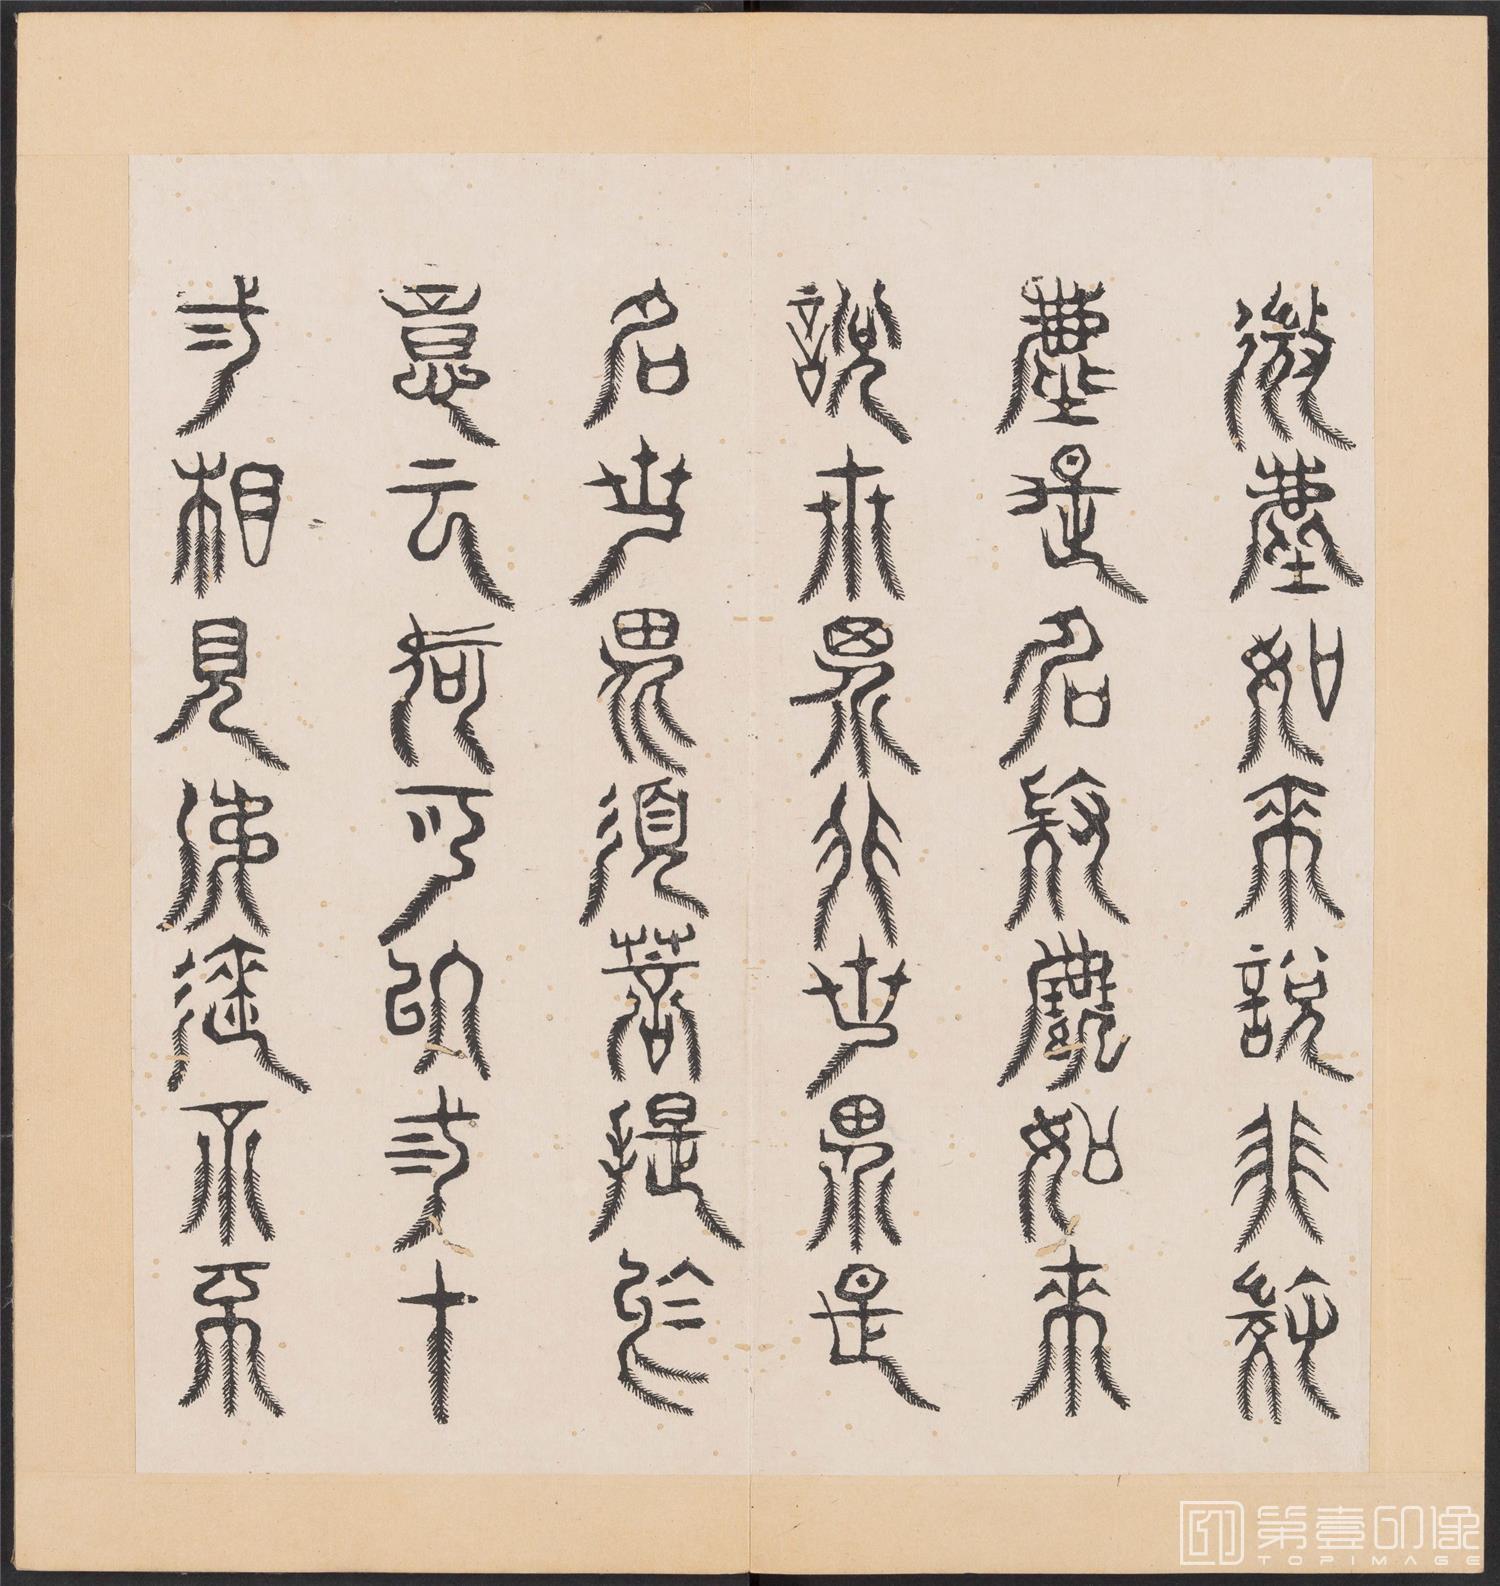 微塵如來說非微
塵是名微塵如來
說世界非世界是
名世界須菩提於
意云何可以弎十
弍相見如來不不
第壹印像
TOPIMAGE